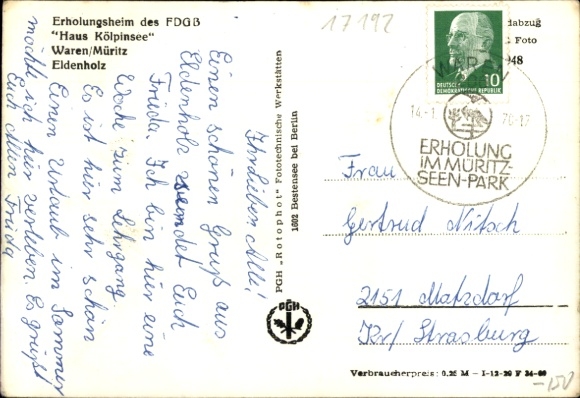 Erholungsheim des FDGB
"Haus Kölpinsee"
Waren/Müritz
Eldenholz
17192
dabzug
Foto
948
10
DEUTSCHE
DEMOKRATISCHE REPUBLIK
WAREN
14.-1
70.-17
ERHOLUNG
IM MÜRITZ-
SEEN-PARK
Ihr lieben Alle!
Einen schönen Gruß aus
Eldenholz sendet Euch
Frieda. Ich bin hier eine
Woche zum Lehrgang
Es ist hier sehr schön
Einen Urlaub im Sommer
möchte ich hier verleben. Es grüßt
Euch Alle Frieda
PGH „Rotophot" Fototechnische Werkstätten
1602 Bestensee bei Berlin
PGH
Frau
Gertrud Nitsch
2151 Matzdorf
Kr/ Strasburg
Verbraucherpreis: 0,25 M – I-12-29 F 34-69
-150